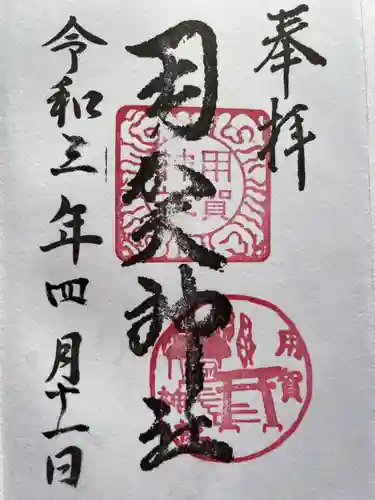 奉拝
用賀神社
令和三年四月十一日
用賀神社
用賀
神社